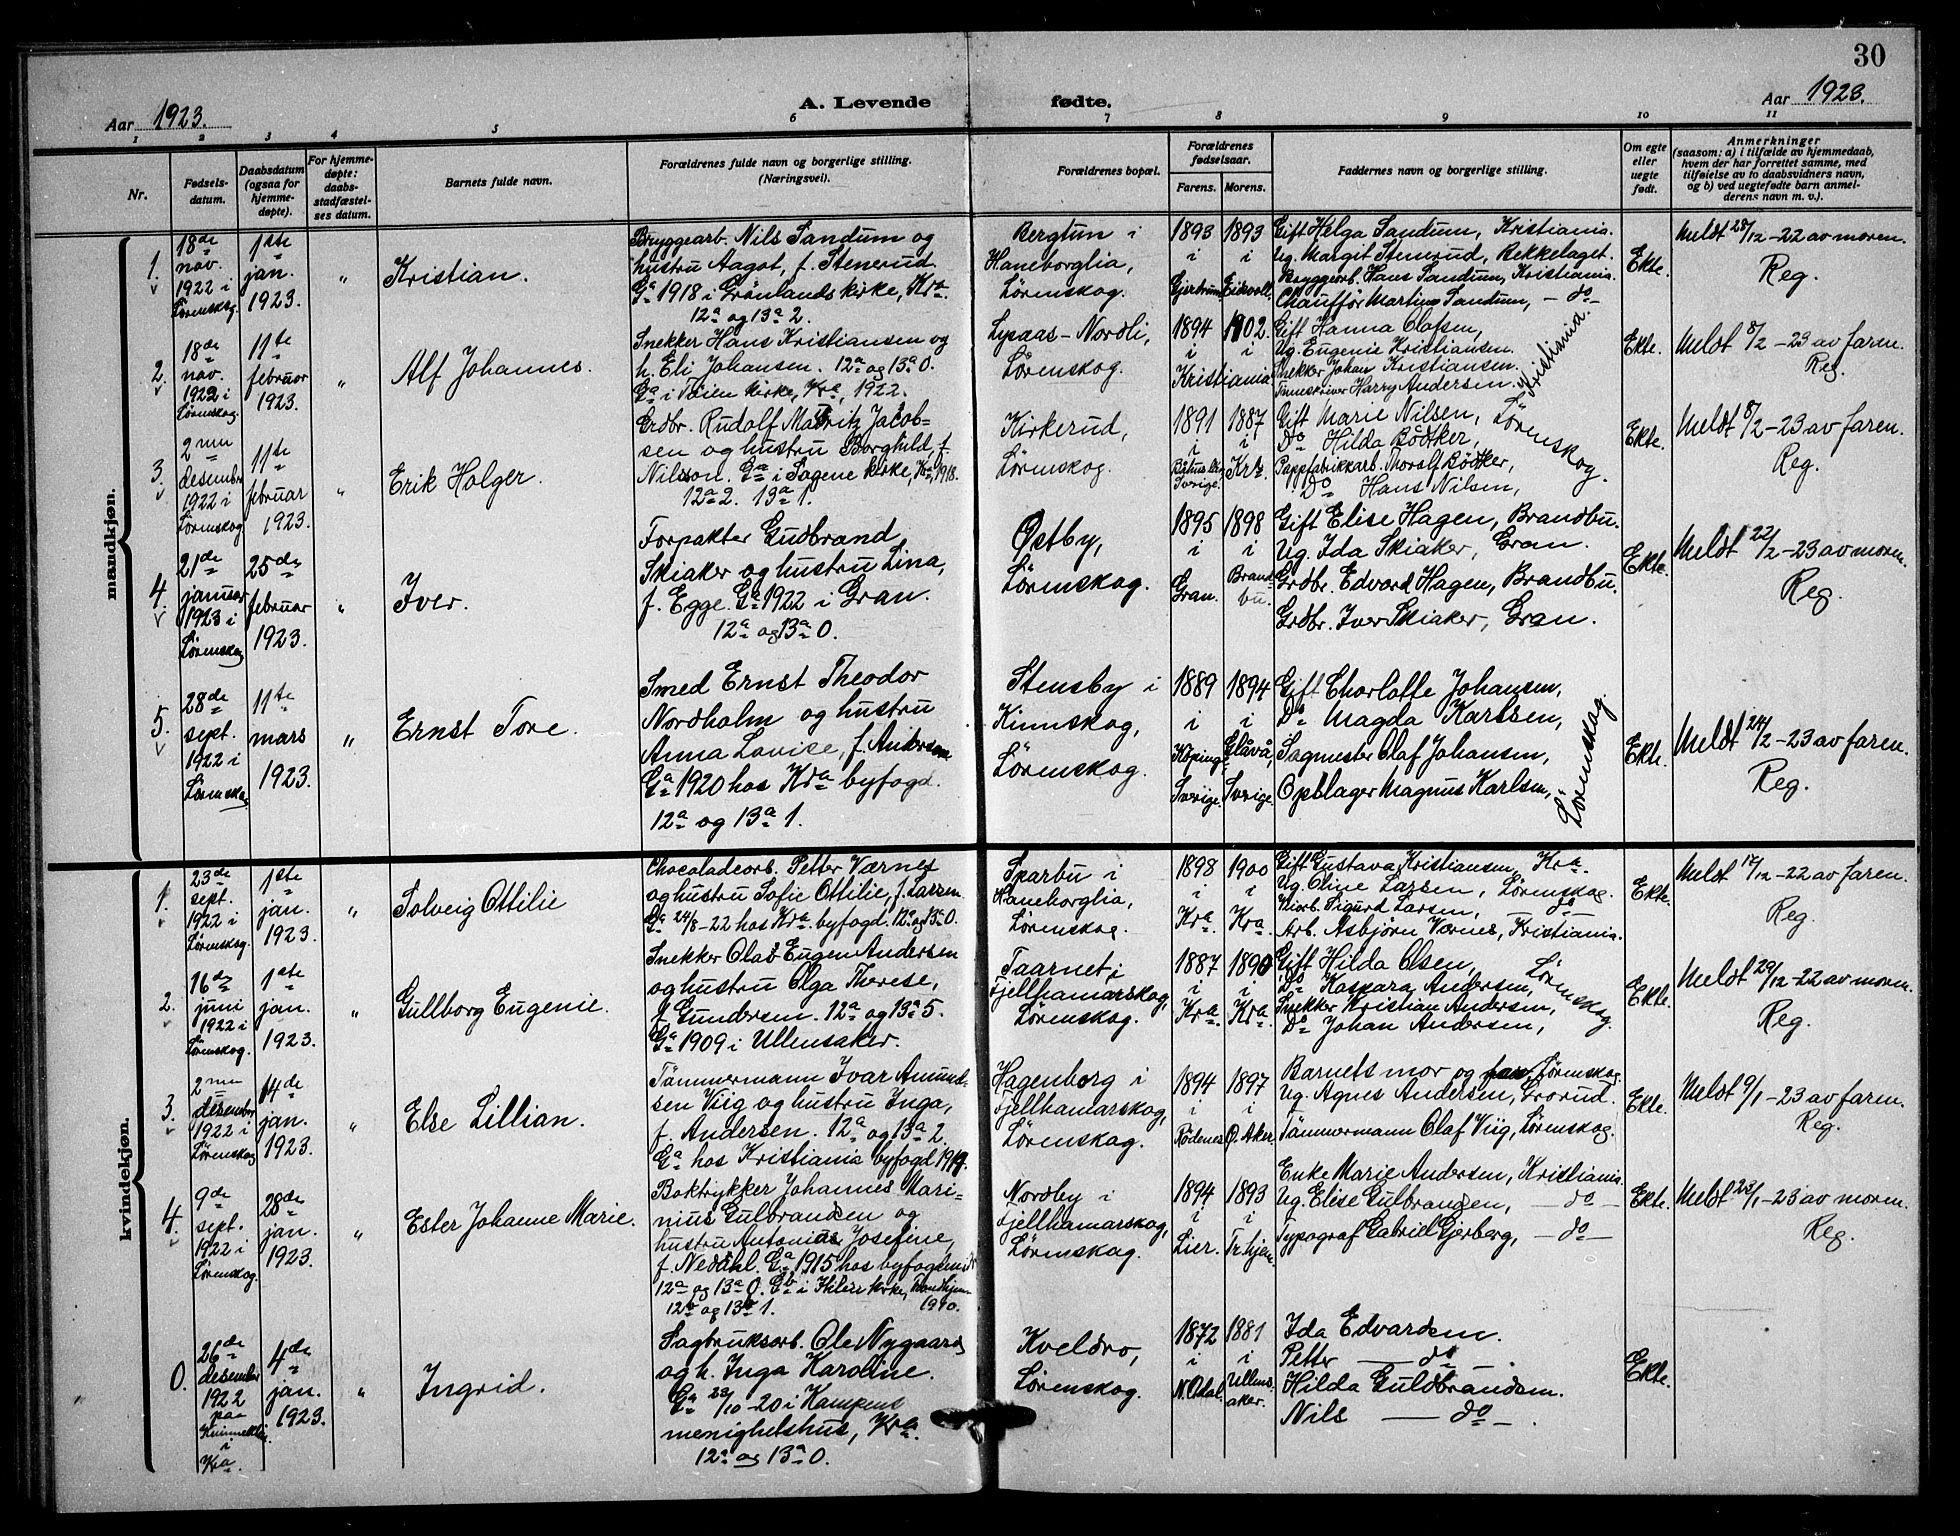 30
Aar 1923.
A. Levende fødte.
Aar 1923.
1 2 3 4 5 6 7 8 9 10 11
Nr.
Fødsels-
datum.
Daabsdatum
(ogsaa for
hjemme-
døpte).
For hjemme-
døpte:
daabs-
stadfæstel-
ses datum.
Barnets fulde navn.
Forældrenes fulde navn og borgerlige stilling.
(Næringsvei).
Forældrenes bopæl.
Forældrenes
fødselsaar.
Farens. Morens.
Faddernes navn og borgerlige stilling.
Om egte
eller
uegte
født.
Anmerkninger
(saasom: a) i tilfælde av hjemmedaab,
hvem der har forrettet samme, med
tilføielse av to daabsvidners navn,
og b) ved uegtefødte barn anmel-
derens navn m. v.).
mandkjøn.
1.
18de
nov.
1922 i
Lørenskog.
1ste
jan.
1923.
"
Kristian.
Bryggearb. Nils Sandum og
hustru Aagot, f. Stenerud
Ga 1918 i Grønlands kirke, Kra.
12a og 13a 2.
Bergtun i
Haneborglia,
Lørenskog.
1893
i
Gjerdrum
1893
i
Eidsvoll.
Gift Helga Sandum, Kristiania.
Ug. Margit Stenerud, Bekkelaget.
Bryggerb. Hans Sandum, Kristiania.
Chauffør Martin Sandum, - do -
Ekte.
Meldt 28/12 -22 av moren.
Reg.
2.
18de
nov.
1922 i
Lørenskog.
11te
februar
1923.
"
Alf Johannes.
Snekker Hans Kristiansen og
h. Eli Johansen. 12a og 13a 0.
Ga i Tøien kirke, Kra, 1922.
Lypaas-Nordli,
Lørenskog.
1894
i
1902.
i
Kristiania.
Gift Hanna Olafsen,
Ug. Eugenie Kristiansen
Snekker Johan Kristiansen
Harry Andersen.
Kristiania.
Ekte.
Meldt 8/2 -23 av faren.
Reg.
3.
2nn
desember
1922 i
Lørenskog
11te
februar
1923.
"
Erik Holger.
Grdbr. Rudolf Mauritz Jacob-
sen og hustru Borghild, f.
Nilsson. Ga i Sagene kirke, Kra, 1918.
12a 2. 13a 1.
Kirkerud,
Lørenskog.
1891
i
Sverige.
1887
i
Kra.
Gift Marie Nilsen,
Do Hilda Bødtker,
Pappfabrikkarb. Thoralf Bødtker,
Do Hans Nilsen,
Lørenskog.
Ekte.
Meldt 8/2 -23 av faren.
Reg.
4.
21de
januar
1923 i
Lørenskog
25de
februar
1923.
"
Iver.
Forpakter Gudbrand
Skiaker og hustru Lina,
f. Egge. Ga 1922 i Gran.
12a og 13a 0.
Østby,
Lørenskog.
1895
i
Gran.
1898
i
Brand-
bu.
Gift Elise Hagen, Brandbu.
Ug. Ida Skiaker, Gran.
Grdbr. Edvard Hagen, Brandbu.
Grdbr. Iver Skiaker, Gran.
Ekte.
Meldt 22/2 -23 av moren.
Reg.
5.
28de
sept.
1922 i
Lørenskog
11te
mars
1923.
"
Ernst Tore.
Smed Ernst Theodor
Nordholm og hustru
Anna Lovise, f. Andersen
Ga 1920 hos Kra byfogd.
12a og 13a 1.
Stensby i
Kinnskog,
Lørenskog.
1889
i
Köping
Sverige.
1894
i
Glåvå,
Sverige.
Gift Charlotte Johansen,
Do Magda Karlsen,
Sagmester Olaf Johansen,
Oplager Magnus Karlsen,
Lørenskog.
Ekte.
Meldt 24/2 -23 av faren.
Reg.
kvindekjøn.
1.
23de
sept.
1922 i
Lørenskog.
1ste
jan.
1923.
"
Solveig Ottilie
Chocoladearb. Petter Værnes
og hustru Sofie Ottilie, f. Larsen
Ga 24/8 -22 hos Kra. byfogd. 12a og 13a 0.
Sparbu i
Haneborglia,
Lørenskog.
1898
i
Kra.
1900
i
Kra.
Gift Gustava Kristiansen, Kra.
Ug. Oline Larsen, Lørenskog.
Sigurd Larsen, do
Arb. Asbjørn Værnes, Kristiania.
Ekte.
Meldt 14/12 -22 av faren.
Reg.
2.
16de
juni
1922 i
Lørenskog.
1ste
jan.
1923.
"
Gullborg Eugenie.
Snekker Olaf Eugen Andersen
og hustru Olga Therese,
f. Gundersen. 12a og 13a 5.
Ga 1909 i Ullensaker.
Taarnet i
Fjellhamarskog,
Lørenskog.
1887
i
Kra.
1890
i
Kra.
Gift Hilda Olsen,
Do Kaspara Andersen,
Snekker Kristian Andersen,
Do Johan Andersen,
Lørenskog.
Ekte.
Meldt 29/12 -22 av moren.
Reg.
3.
2nn
desember
1922 i
Lørenskog
14de
jan.
1923.
"
Else Lillian.
Tømmermann Ivar Amund-
sen Viig og hustru Inga,
f. Andersen. 12a og 13a 2.
Ga hos Kristiania byfogd 1919.
Hagenborg i
Fjellhamarskog,
Lørenskog.
1894
i
Rødenes
1897
i
Ø. Aker.
Barnets mor og far, Lørenskog.
Ug. Agnes Andersen, Grorud.
Tømmermann Olaf Viig, Lørenskog.
Ekte.
Meldt 9/1 -23 av faren.
Reg.
4.
9de
sept.
1922 i
Lørenskog
28de
jan.
1923.
"
Ester Johanne Marie.
Boktrykker Johannes Mari-
nius Gulbrandsen og
hustru Antonie Josefine,
f. Nedahl. Ga 1915 hos byfogden i
12a og 13a 0. Gb i Ihlen kirke, Trondhjem
12b og 13b 1. 1910.
Nordby i
Fjellhamarskog,
Lørenskog.
1894
i
Lier.
1893
i
Tr.hjem
Enke Marie Andersen, Kristiania
Ug. Elise Gulbrandsen, - do -
Typograf Gabriel Gjerberg, - do -
Ekte.
Meldt 23/1 -23 av moren.
Reg.
0.
26de
desember
1922
paa
i
Kra.
4de
jan.
1923.
"
Ingrid.
Sagbruksarb. Ole Nygaard
og h. Inga Karoline.
Ga 23/10 -20 i Kampens
menighetshus, Kra.
12a og 13a 0.
Kveldro,
Lørenskog.
1872
i
N. Odal.
1881
i
Ullens-
aker.
Ida Edvardsen.
Petter - do - .
Hilda Guldbrandsen.
Nils - do - .
Ekte.